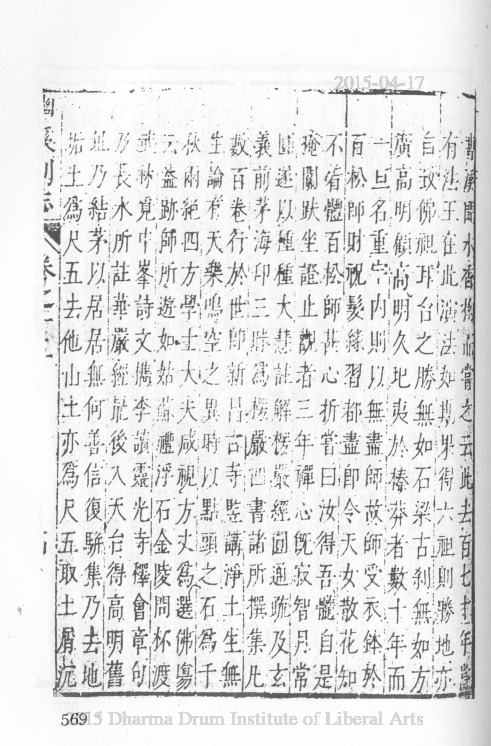 2015-04-17
有法王在此演法如期果得六祖則勝地亦
自故佛祖耳台之勝無如石梁古刹無如方
廣高明傾高明久圯夷於榛莽者數十年而
一旦名重宇内則以無盡師故師受衣鉢於
百松師時祝髮緣習都盡即令天女散花知
不着體百松師甚心折當曰汝得吾髓自是
掩關趺坐證止觀者三年禪心既寂智月常
圓遂以種種大慧註解楞嚴經圓通疏及玄
義前茅海印三昧為楞嚴四書諸所撰集凡
數百卷行於世即新昌古寺監講淨土生無
生論有天樂鳴空之異時以點頭之石為千
秋兩絕四方學士大夫咸視方丈為選佛場
云盍跡師所遊如姑蘇禮浮石金陵問杯渡
武林覓中峯詩文檇李讀靈光寺禪會章句
乃長水所註華嚴經最後入天台得高明舊
址乃結茅以居居無何善信復駢集乃去地
垢土為尺五去他山土亦為尺五取土屑沉
幽溪别志
卷之
569
2015 Dharma Drum Institute of Liberal Arts